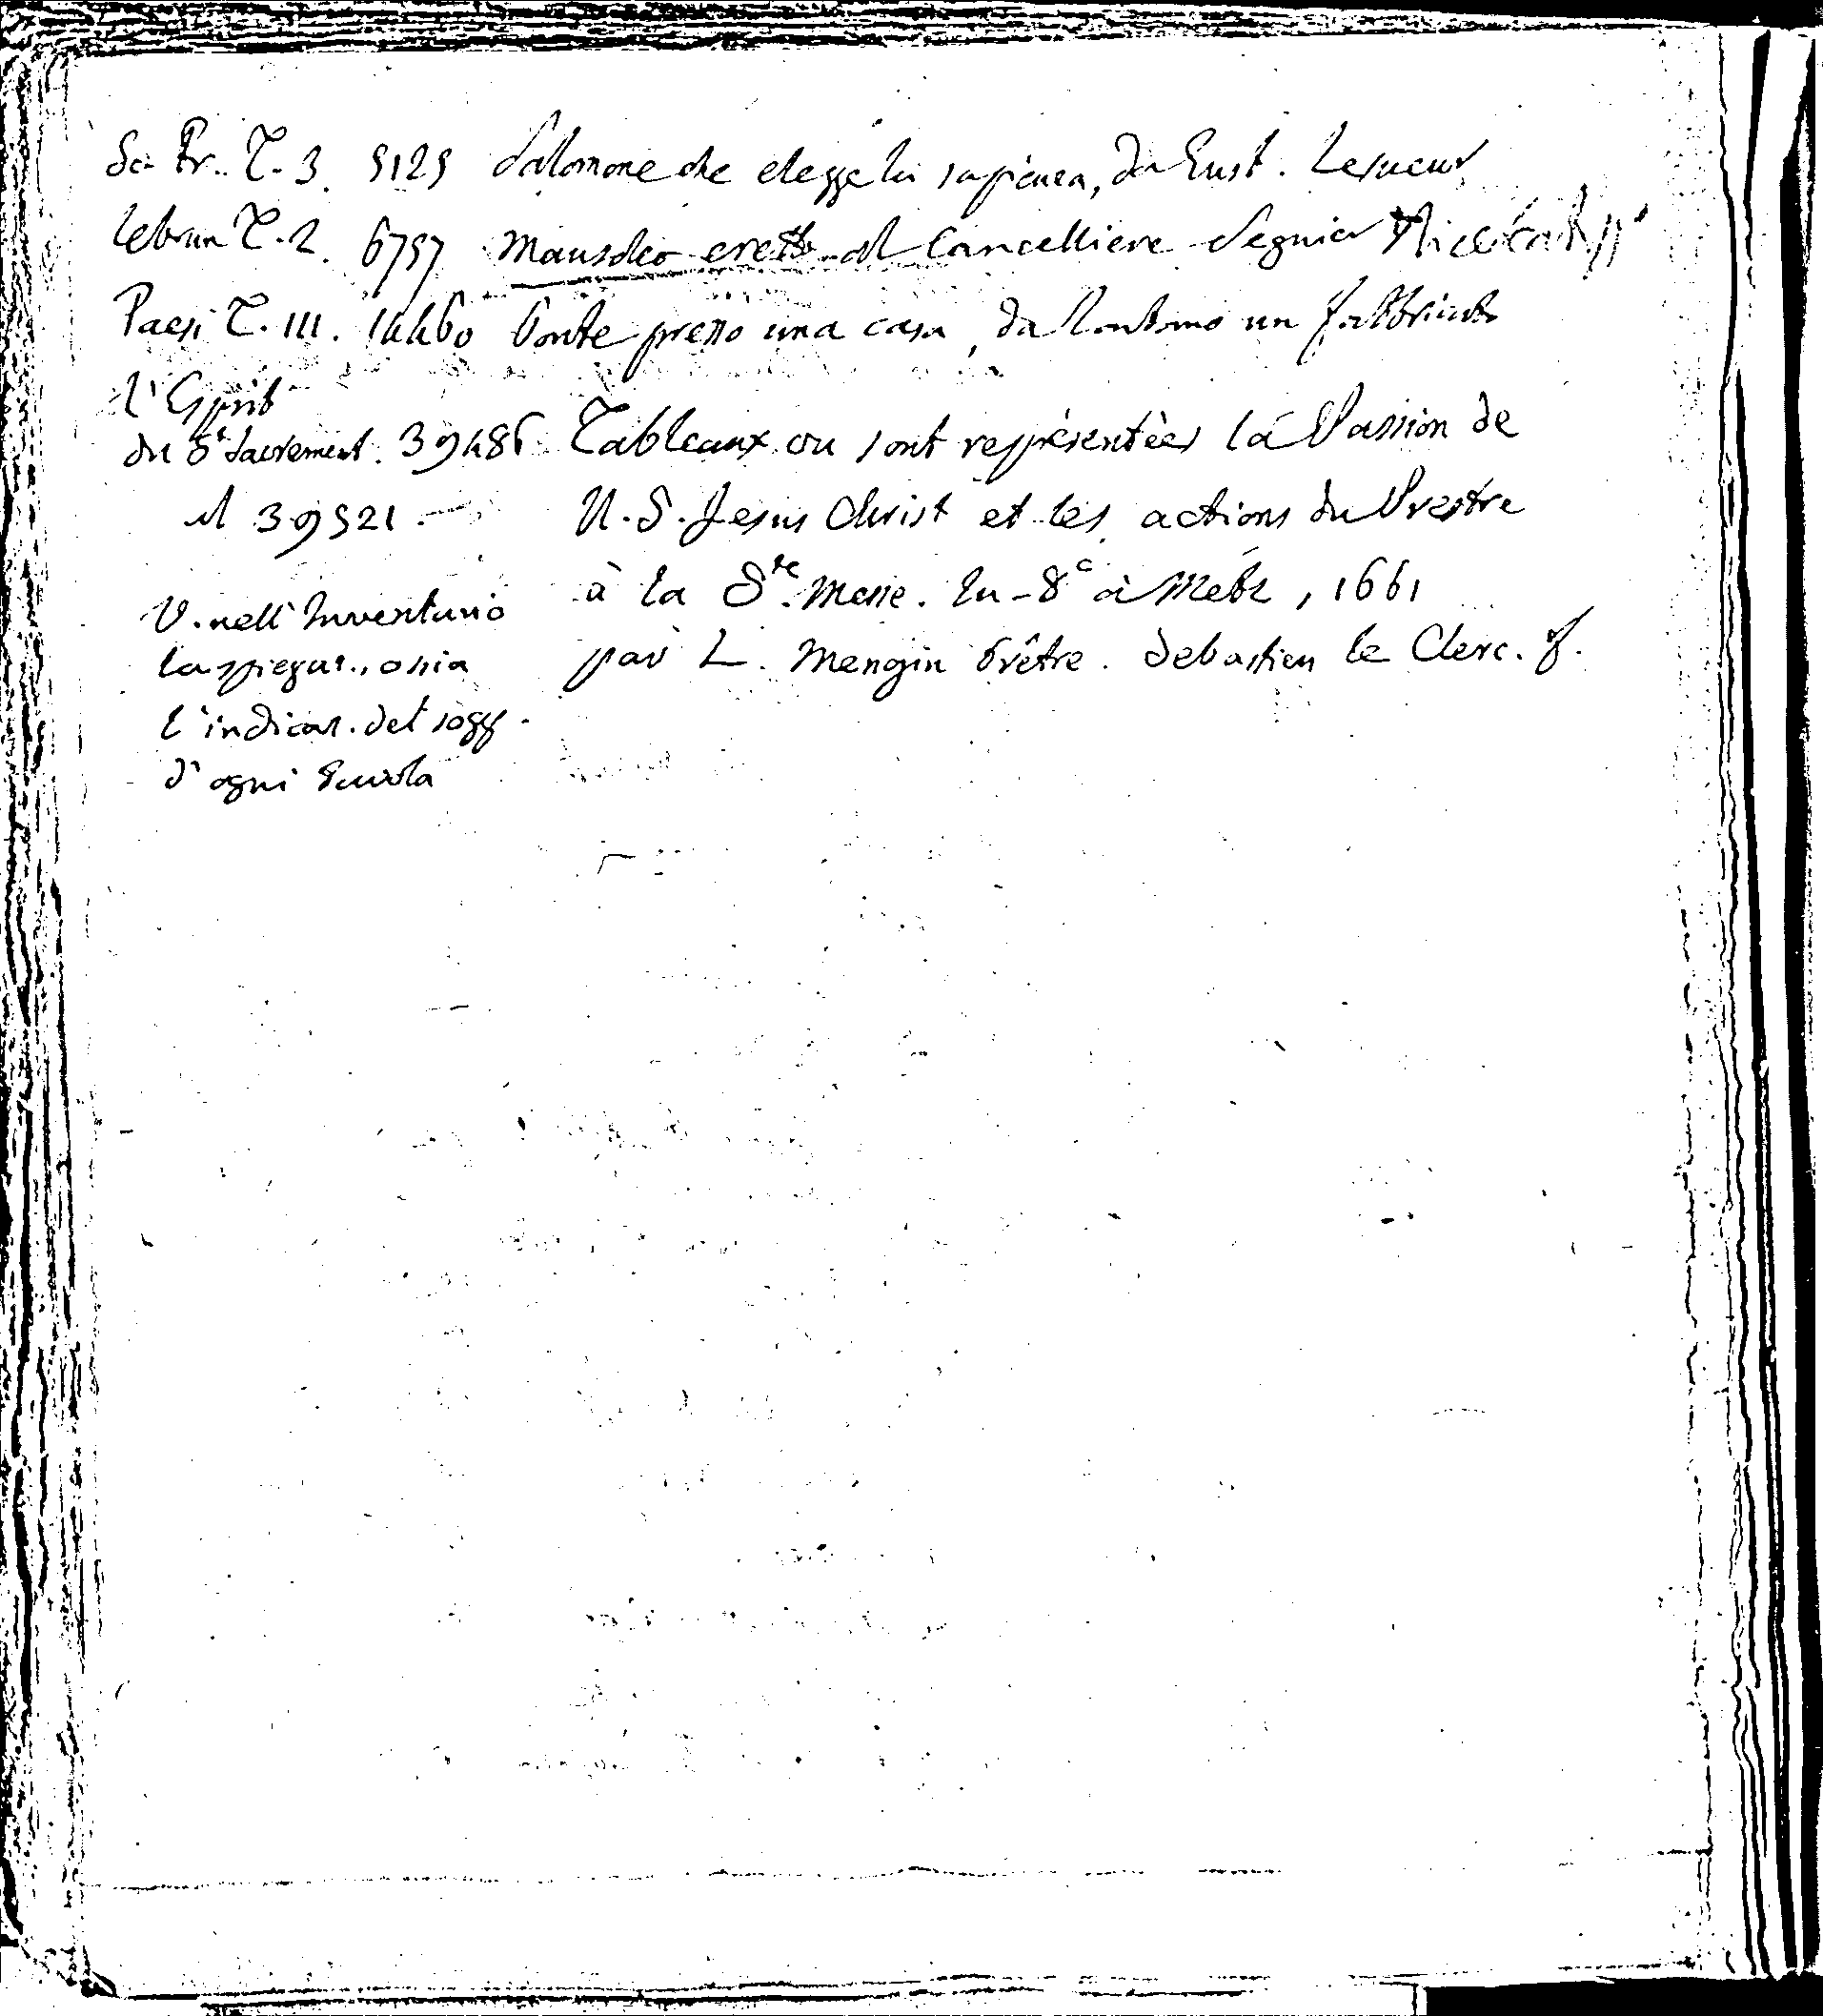 Sc. Fr. T. 3. 5125 Salomone che elegge la sapienza, da Eust. Lesueur
Lebrun T. 2. 6757 Mausoleo eretto al Cancelliere Seguier
Paesi T. III. 14460 Ponte presso una casa, da lontano un fabbricato
L'Esprit
du St Sacrement. 39486 Tableaux ou sont représentèes la Passion de
al 39521. N. S. Jesus Christ et les actions du Prestre
à la Ste Messe. In-8º à Metz, 1661
V. nell'Inventario par L. Mengin Prêtre. Sebastien le Clerc. f.
la spiegaz., ossia
l'indicaz. del sogg.
d'ogni tavola